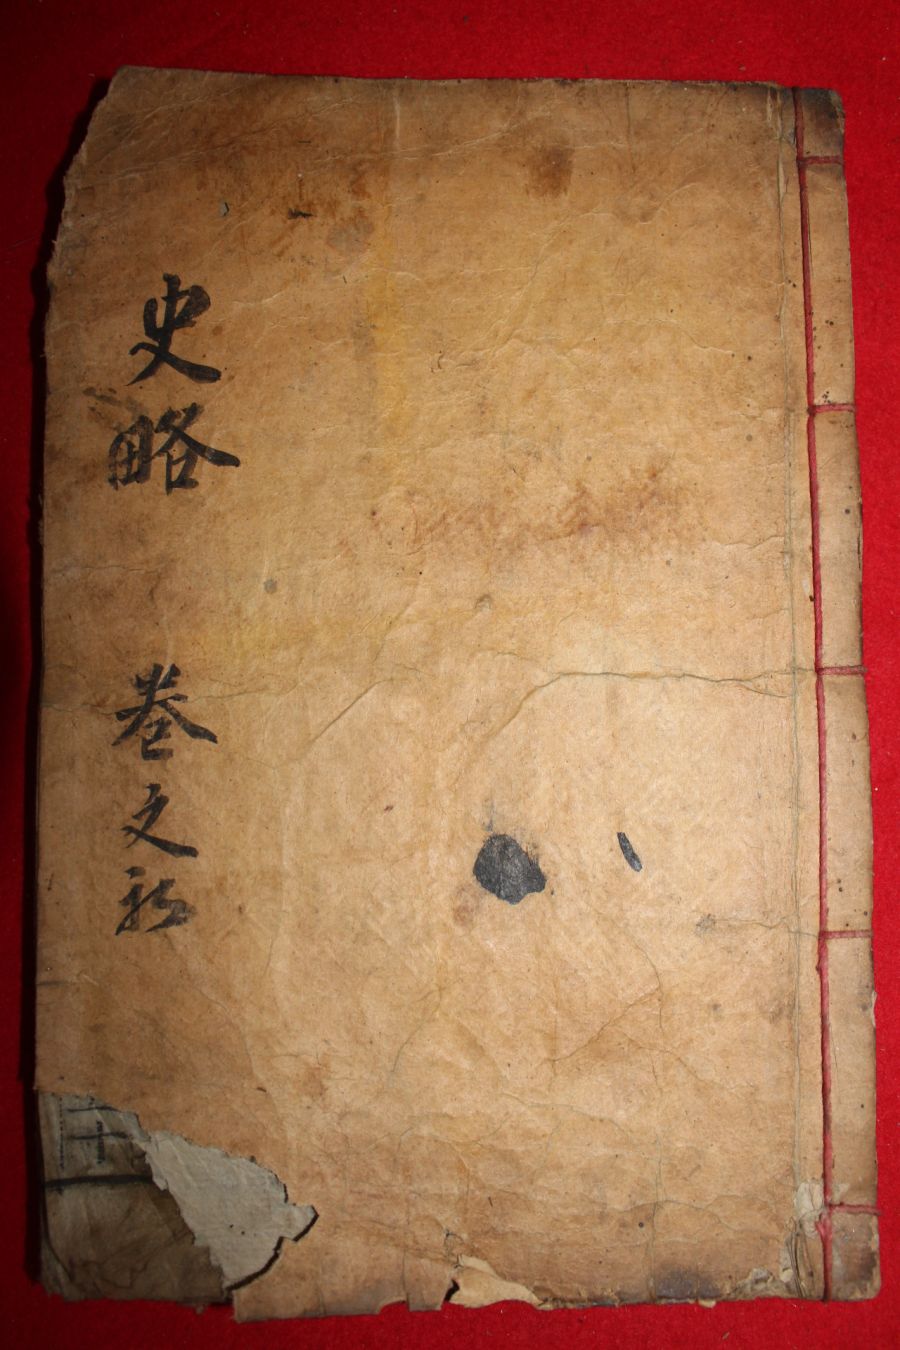 史略 卷之初